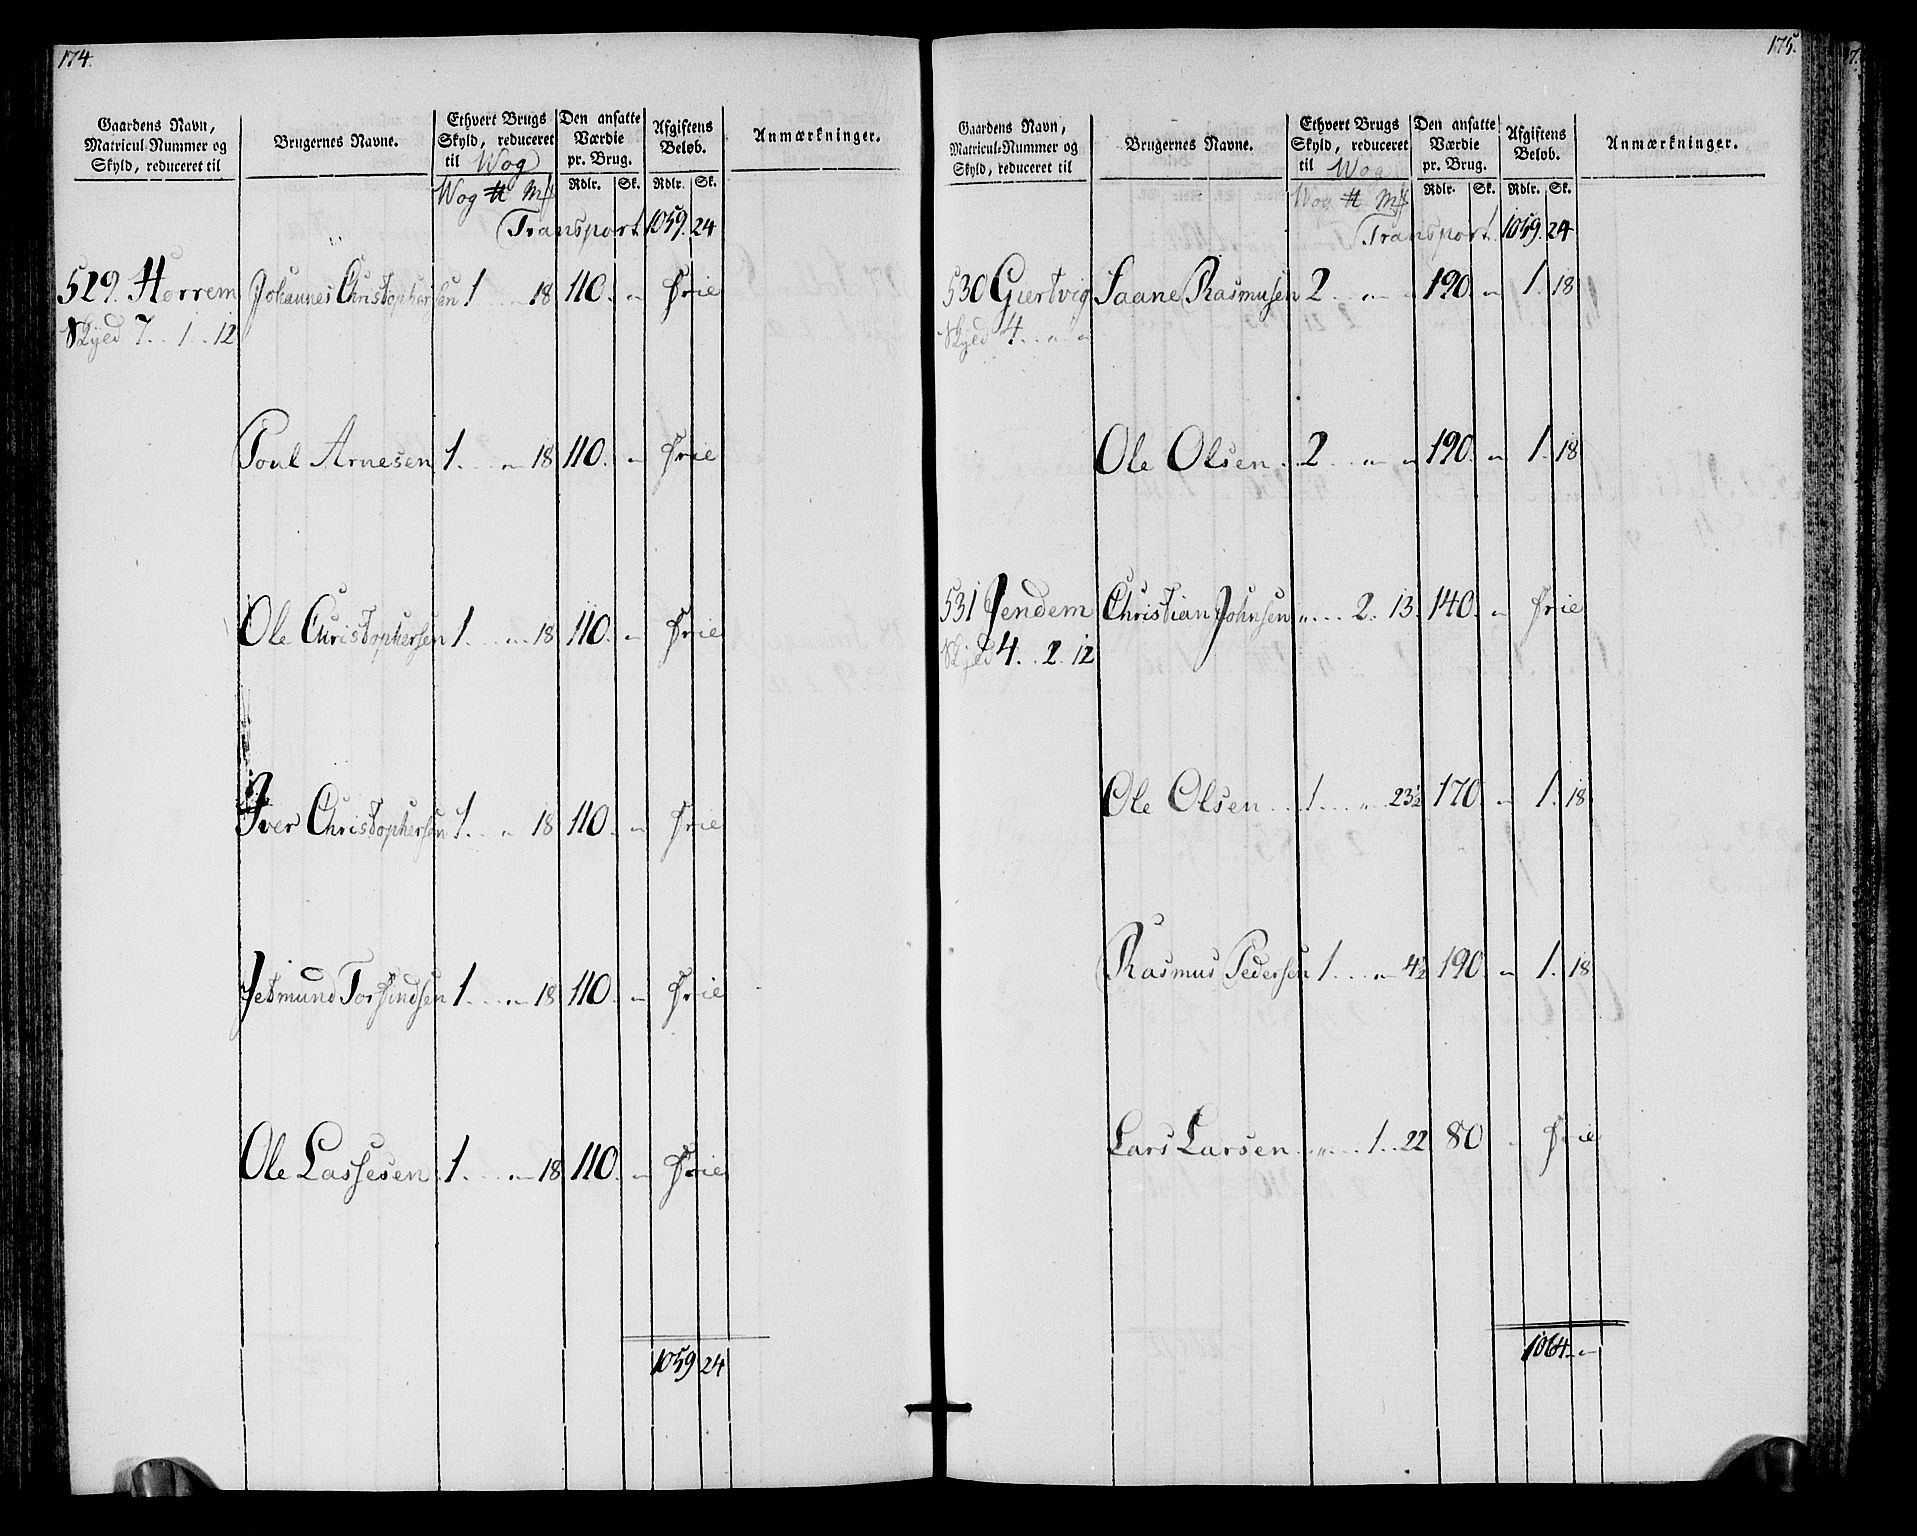 174.
Gaardens Navn, Matricul-Nummer og Skyld, reduceret til | Brugernes Navne. | Ethvert Brugs Skyld, reduceret til Wog | Den ansatte Værdie pr. Brug. | Afgiftens Beløb. | Anmærkninger.
Wog ℔ M℔ | Rdlr. | Sk. | Rdlr. | Sk.
Transport 1059. 24
529. Horrem Johannes Christophersen 1 .... 18 110. " Frie
Skyld 7. . 1 . 12
Poul Arnesen 1. . . " 18 110. " Frie
Ole Christophersen 1. . . " 18 110. " Frie
Iver Christophersen 1. . " 18 110. " Frie
Jetmund Torfindsen 1. . . " 18 110. " Frie
Ole Lassesen 1. . . " 18 110. " Frie
1059 24
175.
Gaardens Navn, Matricul-Nummer og Skyld, reduceret til | Brugernes Navne. | Ethvert Brugs Skyld, reduceret til Wog | Den ansatte Værdie pr. Brug. | Afgiftens Beløb. | Anmærkninger.
Wog ℔ M℔ | Rdlr. | Sk. | Rdlr. | Sk.
Transport. 1059. 24
530 Giertvig Saane Rasmusen 2 . . " " 190. " 1. 18
Skyld 4. . " "
Ole Olsen . 2 . . " " 190. " 1. 18
531 Jendem Christian Johnsen " . . . 2. 13. 140. " Frie
Skyld 4. . 2. 12
Ole Olsen . . 1. . . " 23½ 170. " 1. 18
Rasmus Pedersen 1. . . " 4½ 190. " 1. 18
Lars Larsen . . " . . 1 . . 22 80 " Frie
1064. "